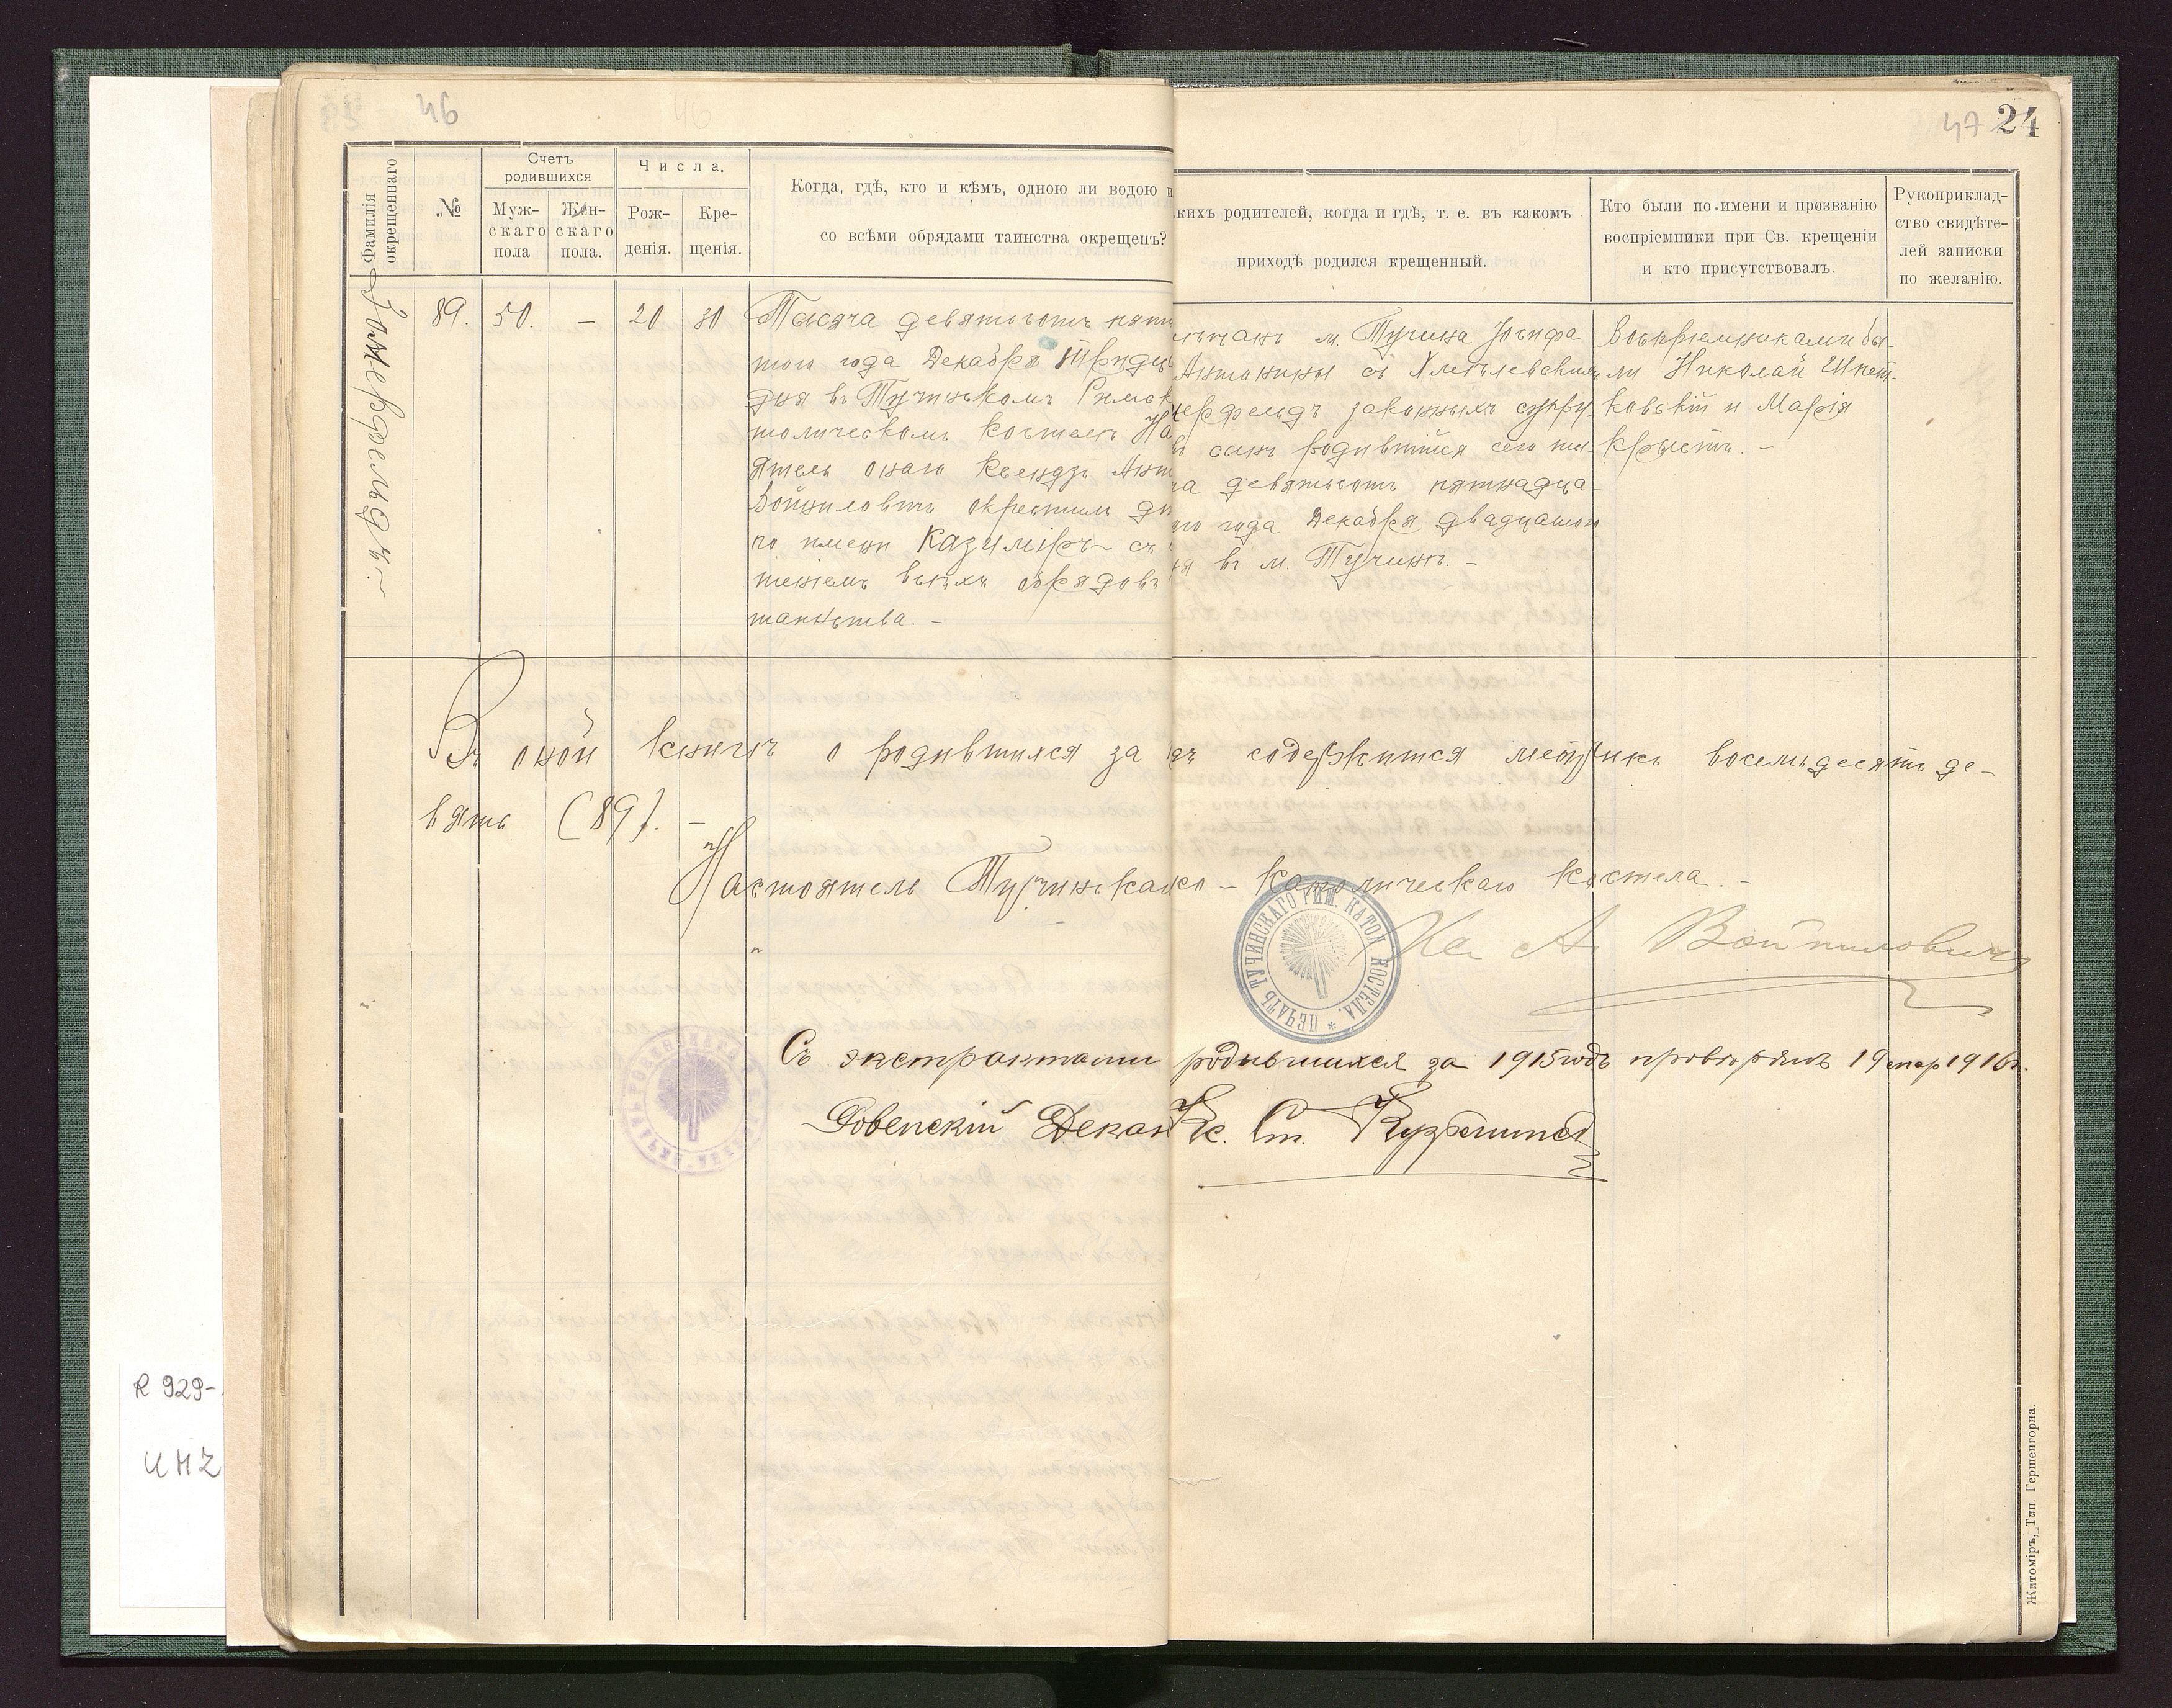 46
47 24
Фамилія окрещеннаго
№
Счетъ родившихся
Муж-скаго пола
Жен-скаго пола.
Числа.
Рож-денія.
Кре-щенія.
Когда, гдѣ, кто и кѣмъ, одною ли водою и
со всѣми обрядами таинства окрещенъ?
кихъ родителей, когда и гдѣ, т. е. въ какомъ
приходѣ родился крещенный.
Кто были по имени и прозванію
воспріемники при Св. крещеніи
и кто присутствовалъ.
Рукоприклад-
ство свидѣте-
лей записки
по желанію.
89. 50. — 20 30
Тысяча девятьсотъ пятн
того года Декабря тридц
дня въ Тучинскомъ Римск
толическомъ костелѣ На
ятель онаго Ксендзъ Ант
Войниловичъ окрестилъ
по имени Казиміръ съ
теніемъ всѣхъ обрядовъ
таинства. —
м. Тучина Іосифа
Антонины съ
ерфельдъ законныхъ супру-
въ сынъ родившійся сего ты-
ча девятьсотъ пятнадца-
го года Декабря двадцатого
ня въ м. Тучинѣ. —
Воспріемниками бы-
ли Николай
ковскій и Марія
Крыстъ. —
Въ оной книгѣ о родившихся за дъ содержится метрикъ восемьдесятъ де-
вять (89). —
Настоятель Тучинска ко — католическаго костела. —
Кс А. Войниловичъ
ПЕЧАТЬ ТУЧИНСКАГО РИМ. КАТОЛ. КОСТЕЛА. *
Съ экстрактами родившихся за 1915 годъ провѣрялъ 19 1916г.
Ровенскій Декан Кс. Ст.
R 929-
Житоміръ, Тип. Гершенгорна.